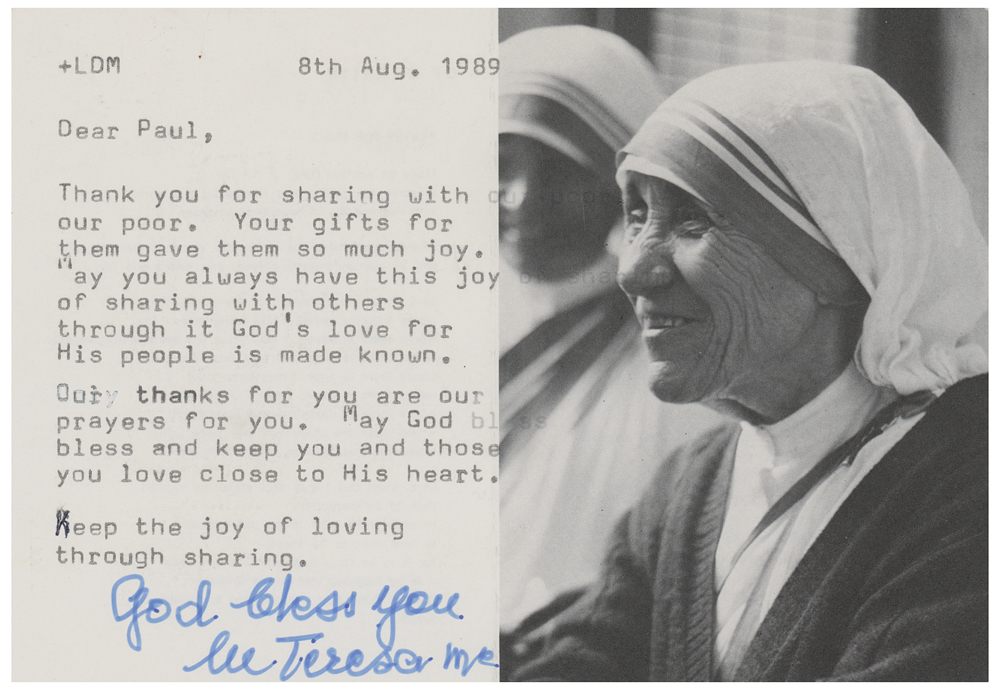 +LDM 8th Aug. 1989
Dear Paul,
Thank you for sharing with
our poor. Your gifts for
them gave them so much joy.
May you always have this joy
of sharing with others
through it God's love for
His people is made known.
Our thanks for you are our
prayers for you. May God bless
bless and keep you and those
you love close to His heart.
Keep the joy of loving
through sharing.
God bless you
M Teresa mc